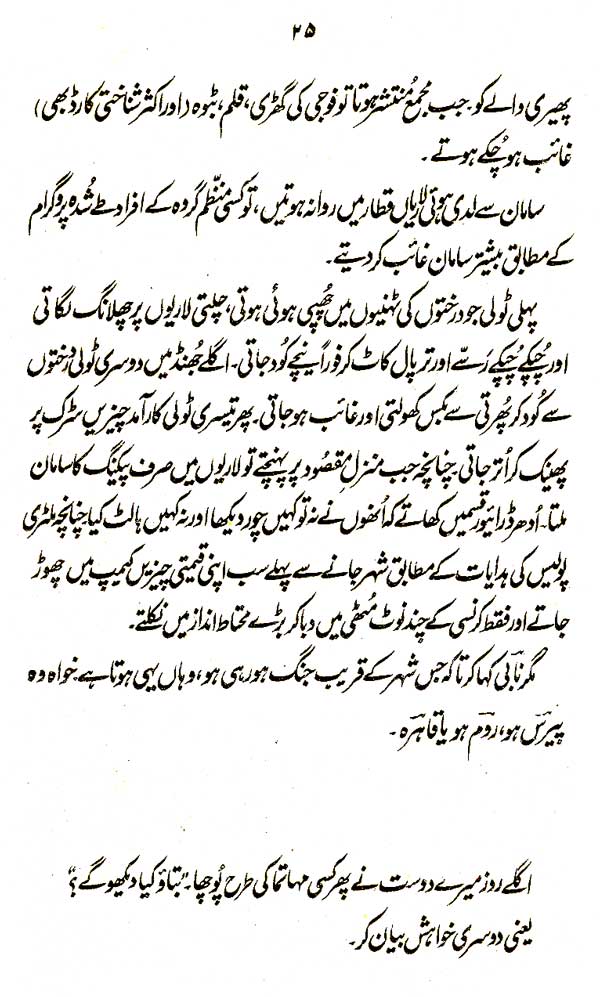 ۲۵
پھیری والے کو۔ جب مجمع مُنتشر ہوتا تو فوجی کی گھڑی، قلم، بٹوہ (اور اکثر شناختی کارڈ بھی)
غائب ہو چُکے ہوتے۔
سامان سے لدی ہوئی لاریاں قطار میں روانہ ہوتیں، تو کسی منظّم گروہ کے افراد طے شُدہ پروگرام
کے مطابق بیشتر سامان غائب کر دیتے۔
پہلی ٹولی جو درختوں کی ٹہنیوں میں چُھپی ہوئی ہوتی، چلتی لاریوں پر چھلانگ لگاتی
اور چُپکے چُپکے رسّے اور ترپال کاٹ کر فوراً نیچے کُود جاتی۔ اگلے جُھنڈ میں دوسری ٹولی درختوں
سے کُود کر پُھرتی سے بکس کھولتی اور غائب ہو جاتی۔ پھر تیسری ٹولی کارآمد چیزیں سڑک پر
پھینک کر اُتر جاتی۔ چنانچہ جب منزلِ مقصُود پر پہنچتے تو لاریوں میں صرف پیکنگ کا سامان
ملتا۔ اُدھر ڈرائیور قسمیں کھاتے کہ اُنھوں نے نہ تو کہیں چور دیکھا اور نہ کہیں ہالٹ کیا چنانچہ ملٹری
پولیس کی ہدایات کے مطابق شہر جانے سے پہلے سب اپنی قیمتی چیزیں کیمپ میں چھوڑ
جاتے اور فقط کرنسی کے چند نوٹ مُٹھی میں دبا کر بڑے محتاط انداز میں نکلتے۔
مگر نابی کہا کرتا کہ جس شہر کے قریب جنگ ہو رہی ہو، وہاں یہی ہوتا ہے خواہ وہ
پیرس ہو، روم ہو یا قاہرہ۔
اگلے روز میرے دوست نے پھر کسی مہاتما کی طرح پُوچھا۔ "بتاؤ کیا دیکھو گے؟"
یعنی دوسری خواہش بیان کر۔